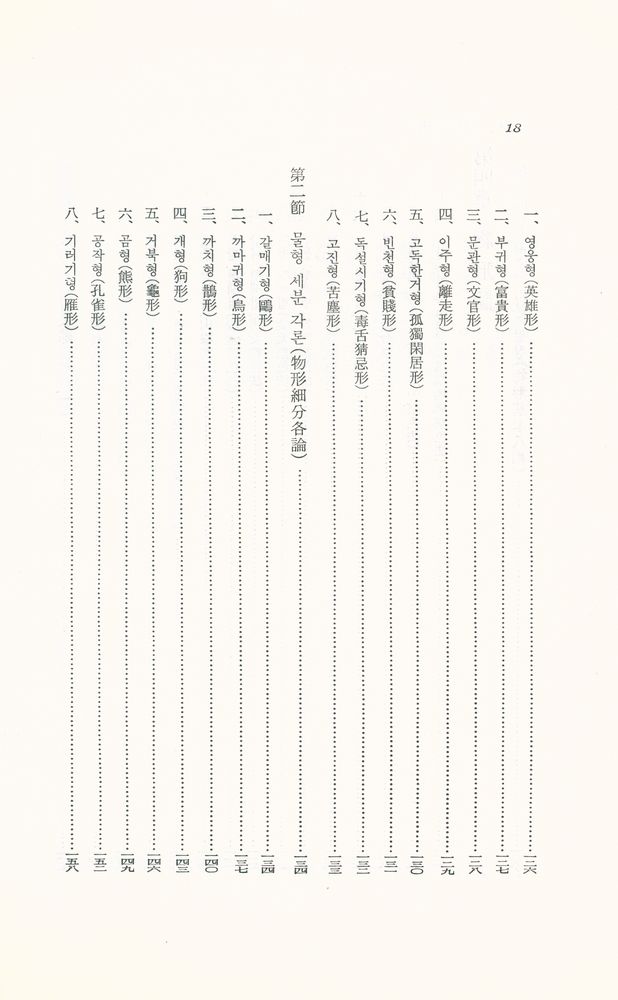 18
一、영웅형(英雄形)……一二六
二、부귀형(富貴形)……一二七
三、문관형(文官形)……一二八
四、이주형(離走形)……一二九
五、고독한거형(孤獨閑居形)……一三〇
六、빈천형(貧賤形)……一三一
七、독설시기형(毒舌猜忌形)……一三二
八、고진형(苦塵形)……一三三
第二節 물형 세분 각론(物形細分各論)……一三四
一、갈매기형(鷗形)……一三四
二、까마귀형(烏形)……一三七
三、까치형(鵲形)……一四〇
四、개형(狗形)……一四三
五、거북형(龜形)……一四六
六、곰형(熊形)……一四九
七、공작형(孔雀形)……一五二
八、기러기형(雁形)……一五八